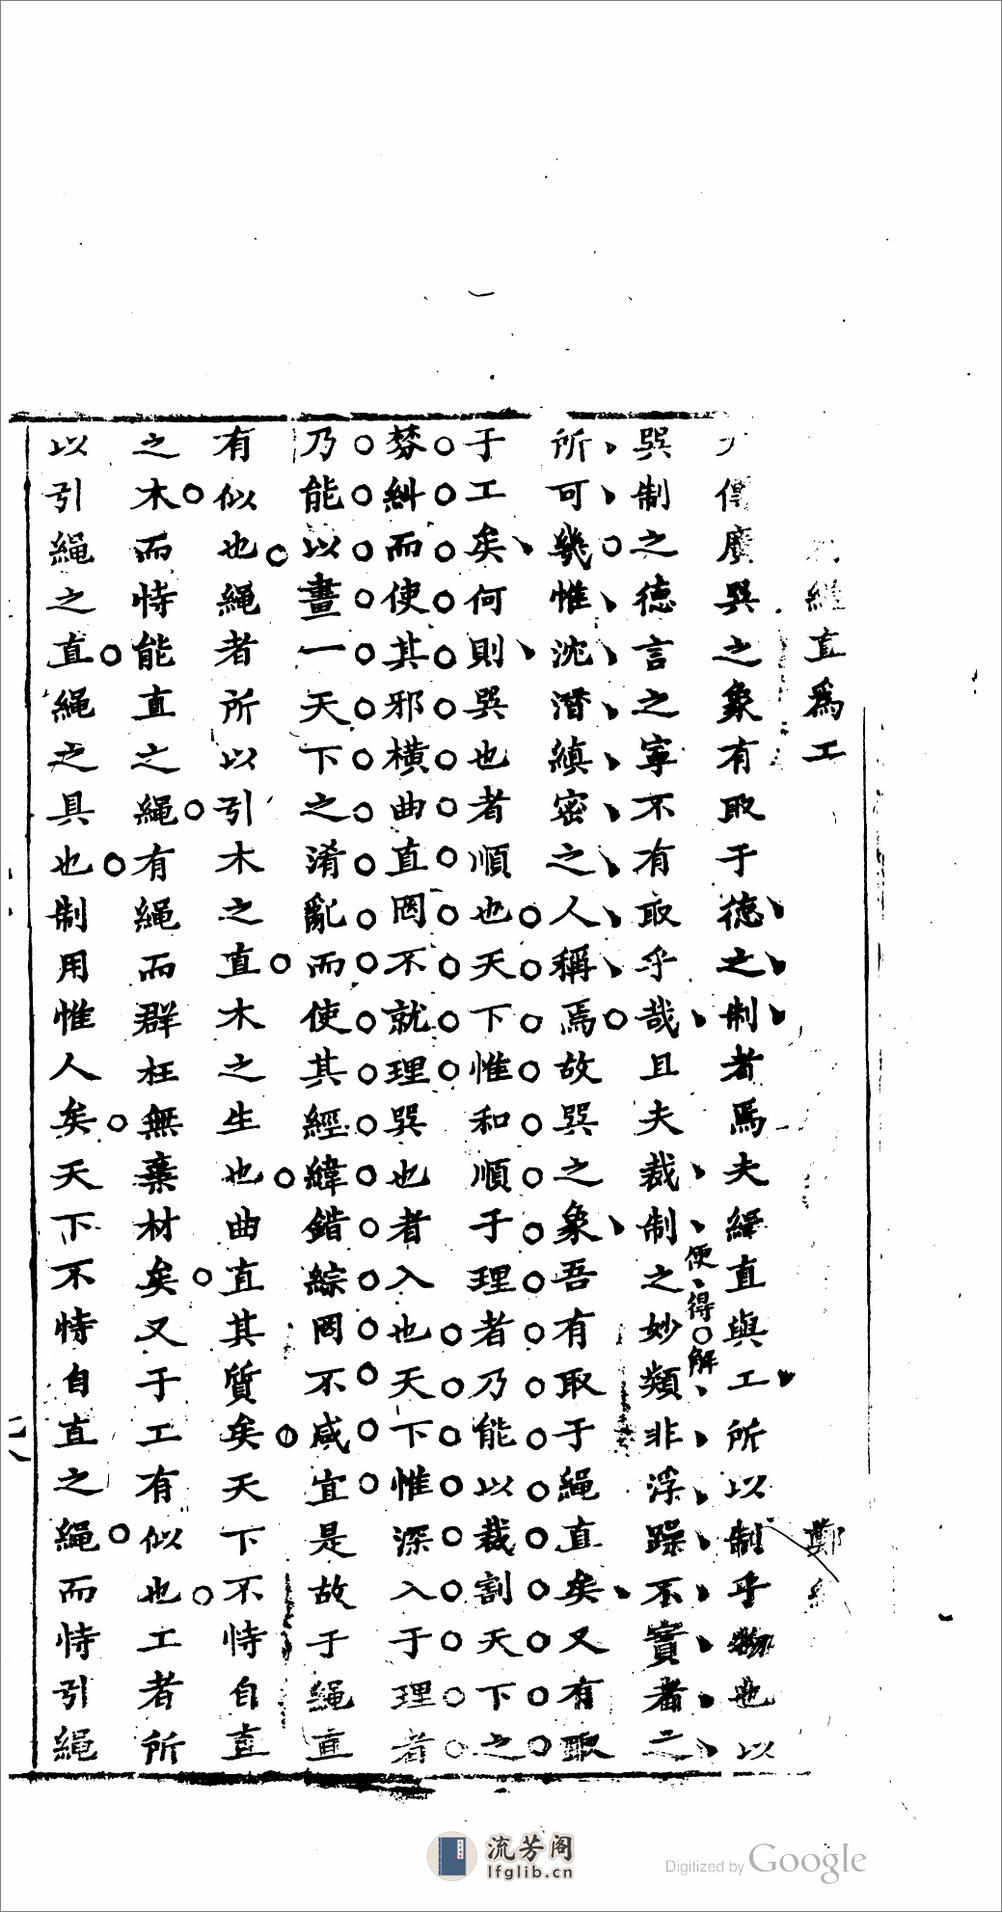 繩直爲工 鄭
傳廣巽之象有取于德之制者焉夫繩直與工所以制乎物也以
巽制之德言之寧不有取乎哉且夫裁制之妙類非浮躁不實者之
便得解
所可幾惟沈潛縝密之人稱焉故巽之象吾有取于繩直矣又有取
于工矣何則巽也者順也天下惟和順于理者乃能以裁割天下之
棼糾而使其邪橫曲直罔不就理巽也者入也天下惟深入于理者
乃能以畫一天下之淆亂而使其經緯錯綜罔不咸宜是故于繩直
有似也繩者所以引木之直木之生也曲直其質矣天下不恃自直
之木而恃能直之繩有繩而群枉無棄材矣又于工有似也工者所
以引繩之直繩之具也制用惟人矣天下不恃自直之繩而恃引繩
二八
流芳阁
lfglib.cn
Digitized by Google